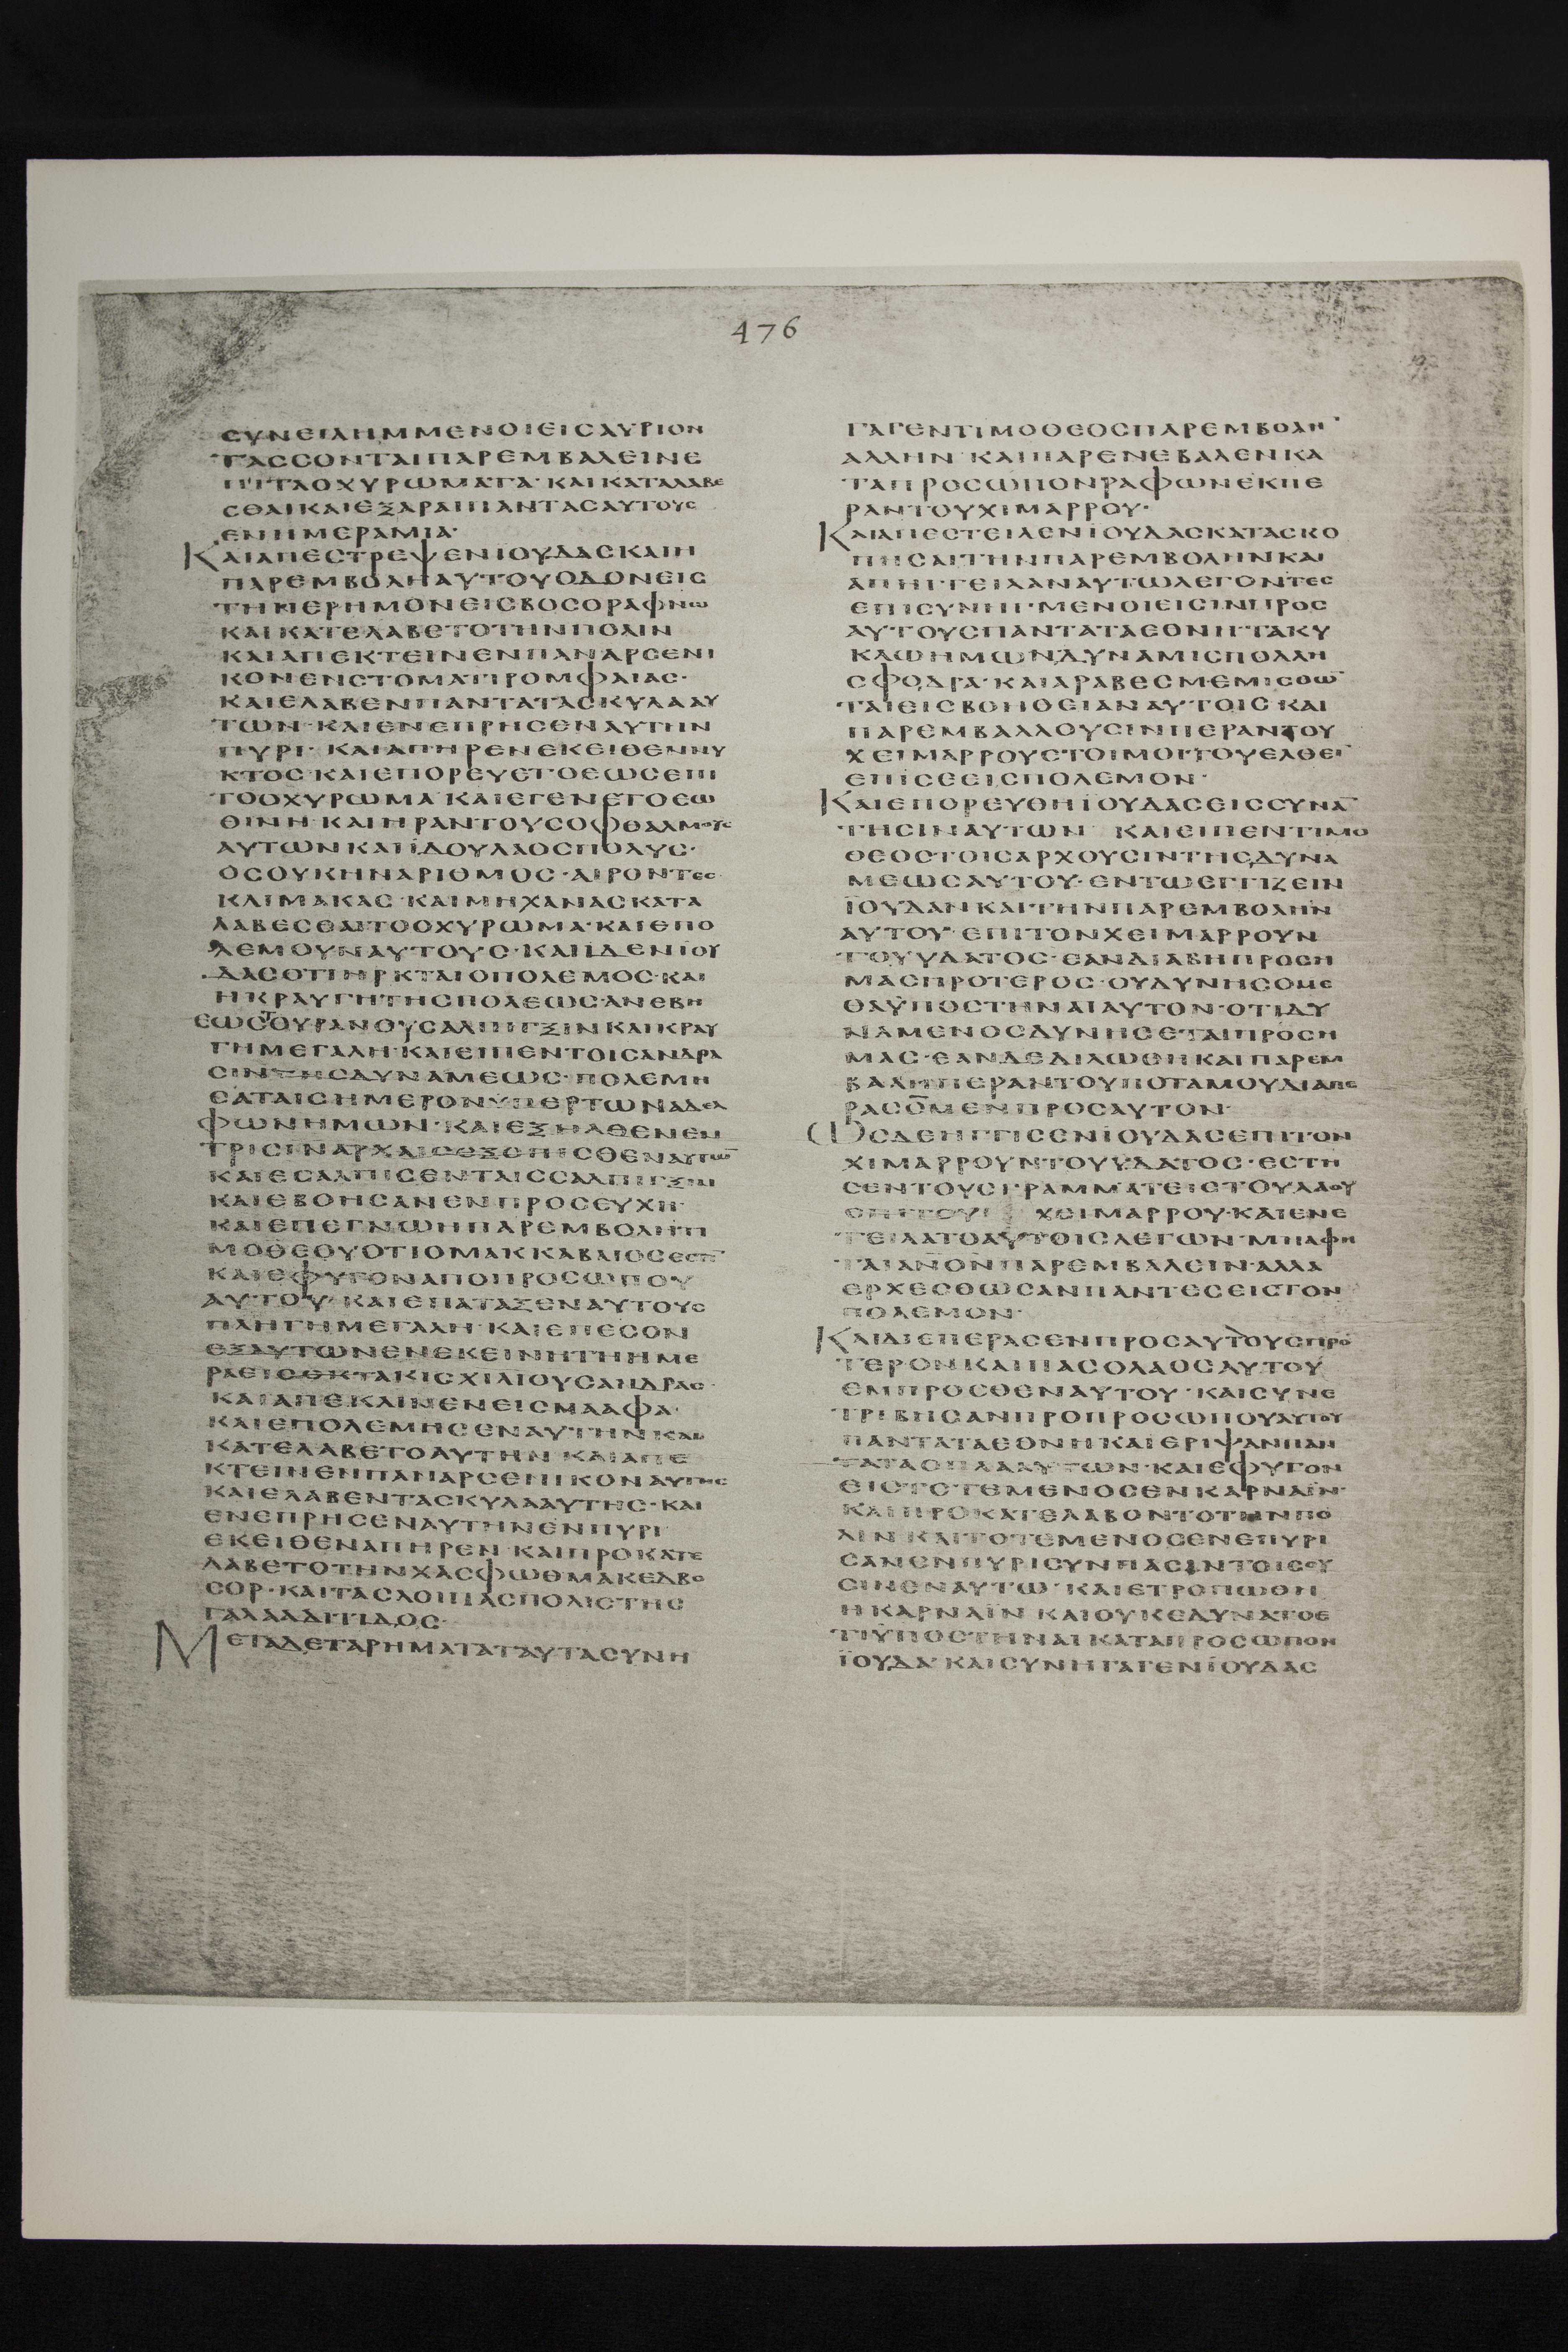 476
ϹΥΝΕΙΛΗΜΜΕΝΟΙΕΙϹΑΥΡΙΟΝ
ΤΑϹϹΟΝΤΑΙΠΑΡΕΜΒΑΛΕΙΝΕ
ΠΙΤΑΟΧΥΡΩΜΑΤΑ·ΚΑΙΚΑΤΑΛΑΒΕ
ϹΘΑΙΚΑΙΕΞΑΡΑΙΠΑΝΤΑϹΑΥΤΟΥϹ
ΕΝΗΜΕΡΑΜΙΑ·
ΚΑΙΑΠΕϹΤΡΕΨΕΝΪΟΥΔΑϹΚΑΙΗ
ΠΑΡΕΜΒΟΛΗΑΥΤΟΥΟΔΟΝΕΙϹ
ΤΗΝΕΡΗΜΟΝΕΙϹΒΟϹΟΡΑΦΝΩ
ΚΑΙΚΑΤΕΛΑΒΕΤΟΤΗΝΠΟΛΙΝ
ΚΑΙΑΠΕΚΤΕΙΝΕΝΠΑΝΑΡϹΕΝΙ
ΚΟΝΕΝϹΤΟΜΑΤΙΡΟΜΦΑΙΑϹ·
ΚΑΙΕΛΑΒΕΝΠΑΝΤΑΤΑϹΚΥΛΑΑΥ
ΤΩΝ·ΚΑΙΕΝΕΠΡΗϹΕΝΑΥΤΗΝ
ΠΥΡΙ·ΚΑΙΑΠΗΡΕΝΕΚΕΙΘΕΝΝΥ
ΚΤΟϹΚΑΙΕΠΟΡΕΥΕΤΟΕΩϹΕΠΙ
ΤΟΟΧΥΡΩΜΑ·ΚΑΙΕΓΕΝΕΤΟΕΩ
ΘΙΝΗ·ΚΑΙΗΡΑΝΤΟΥϹΟΦΘΑΛΜΟΥϹ
ΑΥΤΩΝΚΑΙΪΔΟΥΛΑΟϹΠΟΛΥϹ·
ΟϹΟΥΚΗΝΑΡΙΘΜΟϹ·ΑΙΡΟΝΤΕϹ
ΚΛΙΜΑΚΑϹ·ΚΑΙΜΗΧΑΝΑϹΚΑΤΑ
ΛΑΒΕϹΘΑΙΤΟΟΧΥΡΩΜΑ·ΚΑΙΕΠΟ
ΛΕΜΟΥΝΑΥΤΟΥϹ·ΚΑΙΪΔΕΝΪΟΥ
ΔΑϹΟΤΙΗΡΚΤΑΙΟΠΟΛΕΜΟϹ·ΚΑΙ
ΗΚΡΑΥΓΗΤΗϹΠΟΛΕΩϹΑΝΕΒΗ
ΕΩϹΟΥΡΑΝΟΥϹΑΛΠΙΓΞΙΝΚΑΙΚΡΑΥ
ΓΗΜΕΓΑΛΗ·ΚΑΙΕΙΠΕΝΤΟΙϹΑΝΔΡΑ
ϹΙΝΤΗϹΔΥΝΑΜΕΩϹ·ΠΟΛΕΜΗ
ϹΑΤΑΙϹΗΜΕΡΟΝΥΠΕΡΤΩΝΑΔΕΛ
ΦΩΝΗΜΩΝ·ΚΑΙΕΞΗΛΘΕΝΕΝ
ΤΡΙϹΙΝΑΡΧΑΙϹΕΞΟΠΙϹΘΕΝΑΥΤΩ̅
ΚΑΙΕϹΑΛΠΙϹΕΝΤΑΙϹϹΑΛΠΙΓΞΙΝ
ΚΑΙΕΒΟΗϹΑΝΕΝΠΡΟϹΕΥΧΗ·
ΚΑΙΕΠΕΓΝΩΗΠΑΡΕΜΒΟΛΗΤΙ
ΜΟΘΕΟΥΟΤΙΟΜΑΚΚΑΒΑΙΟϹΕϹΤΙ̅
ΚΑΙΕΦΥΓΟΝΑΠΟΠΡΟϹΩΠΟΥ
ΑΥΤΟΥ·ΚΑΙΕΠΑΤΑΞΕΝΑΥΤΟΥϹ
ΠΛΗΓΗΜΕΓΑΛΗ·ΚΑΙΕΠΕϹΟΝ
ΕΞΑΥΤΩΝΕΝΕΚΕΙΝΗΤΗΗΜΕ
ΡΑΕΙϹΟΚΤΑΚΙϹΧΙΛΙΟΥϹΑΝΔΡΑϹ·
ΚΑΙΑΠΕΚΛΙΝΕΝΕΙϹΜΑΑΦΑ·
ΚΑΙΕΠΟΛΕΜΗϹΕΝΑΥΤΗΝΚΑΙ
ΚΑΤΕΛΑΒΕΤΟΑΥΤΗΝ·ΚΑΙΑΠΕ
ΚΤΕΙΝΕΝΠΑΝΑΡϹΕΝΙΚΟΝΑΥΤΗϹ
ΚΑΙΕΛΑΒΕΝΤΑϹΚΥΛΑΑΥΤΗϹ·ΚΑΙ
ΕΝΕΠΡΗϹΕΝΑΥΤΗΝΕΝΠΥΡΙ
ΕΚΕΙΘΕΝΑΠΗΡΕΝ·ΚΑΙΠΡΟΚΑΤΕ
ΛΑΒΕΤΟΤΗΝΧΑϹΦΩΘΜΑΚΕΔΒΟ
ϹΟΡ·ΚΑΙΤΑϹΛΟΙΠΑϹΠΟΛΙϹΤΗϹ
ΓΑΛΑΑΔΙΤΙΔΟϹ·
ΜΕΤΑΔΕΤΑΡΗΜΑΤΑΤΑΥΤΑϹΥΝΗ
ΓΑΓΕΝΤΙΜΟΘΕΟϹΠΑΡΕΜΒΟΛΗ̅
ΑΛΛΗΝ·ΚΑΙΠΑΡΕΝΕΒΑΛΕΝΚΑ
ΤΑΠΡΟϹΩΠΟΝΡΑΦΩΝΕΚΠΕ
ΡΑΝΤΟΥΧΙΜΑΡΡΟΥ·
ΚΑΙΑΠΕϹΤΕΙΛΕΝΪΟΥΔΑϹΚΑΤΑϹΚΟ
ΠΗϹΑΙΤΗΝΠΑΡΕΜΒΟΛΗΝΚΑΙ
ΑΠΗΓΓΕΙΛΑΝΑΥΤΩΛΕΓΟΝΤΕϹ
ΕΠΙϹΥΝΗΓΜΕΝΟΙΕΙϹΙΝΠΡΟϹ
ΑΥΤΟΥϹΠΑΝΤΑΤΑΕΘΝΗΤΑΚΥ
ΚΛΩΗΜΩΝΔΥΝΑΜΙϹΠΟΛΛΗ
ϹΦΟΔΡΑ·ΚΑΙΑΡΑΒΕϹΜΕΜΙϹΘΩ
ΤΑΙΕΙϹΒΟΗΘΕΙΑΝΑΥΤΟΙϹ·ΚΑΙ
ΠΑΡΕΜΒΑΛΛΟΥϹΙΝΠΕΡΑΝΤΟΥ
ΧΕΙΜΑΡΡΟΥϹΤΟΙΜΟΙΤΟΥΕΛΘΕΙ̅
ΕΠΙϹΕΕΙϹΠΟΛΕΜΟΝ·
ΚΑΙΕΠΟΡΕΥΘΗΪΟΥΔΑϹΕΙϹϹΥΝΑ̅
ΤΗϹΙΝΑΥΤΩΝ ΚΑΙΕΙΠΕΝΤΙΜΟ
ΘΕΟϹΤΟΙϹΑΡΧΟΥϹΙΝΤΗϹΔΥΝΑ
ΜΕΩϹΑΥΤΟΥ·ΕΝΤΩΕΓΓΙΖΕΙΝ
ΪΟΥΔΑΝΚΑΙΤΗΝΠΑΡΕΜΒΟΛΗΝ
ΑΥΤΟΥ·ΕΠΙΤΟΝΧΕΙΜΑΡΡΟΥΝ
ΤΟΥΥΔΑΤΟϹ·ΕΑΝΔΙΑΒΗΠΡΟϹΗ
ΜΑϹΠΡΟΤΕΡΟϹ·ΟΥΔΥΝΗϹΟΜΕ
ΘΑΫΠΟϹΤΗΝΑΙΑΥΤΟΝ·ΟΤΙΔΥ
ΝΑΜΕΝΟϹΔΥΝΗϹΕΤΑΙΠΡΟϹΗ
ΜΑϹ·ΕΑΝΔΕΔΙΛΩΘΗΚΑΙΠΑΡΕΜ
ΒΑΛΗΠΕΡΑΝΤΟΥΠΟΤΑΜΟΥΔΙΑΠΕ
ΡΑϹΟΜΕΝΠΡΟϹΑΥΤΟΝ·
ΩϹΔΕΗΓΓΙϹΕΝΪΟΥΔΑϹΕΠΙΤΟΝ
ΧΙΜΑΡΡΟΥΝΤΟΥΥΔΑΤΟϹ·ΕϹΤΗ
ϹΕΝΤΟΥϹΓΡΑΜΜΑΤΕΙϹΤΟΥΛΑΟΥ
ΕΠΙΤΟΥ ΧΕΙΜΑΡΡΟΥ·ΚΑΙΕΝΕ
ΤΕΙΛΑΤΟΑΥΤΟΙϹΛΕΓΩΝ·ΜΗΑΦΗ
ΤΑΙΑΝΟΝΠΑΡΕΜΒΑΛΕΙΝ·ΑΛΛΑ
ΕΡΧΕϹΘΩϹΑΝΠΑΝΤΕϹΕΙϹΤΟΝ
ΠΟΛΕΜΟΝ·
ΚΑΙΔΙΕΠΕΡΑϹΕΝΠΡΟϹΑΥΤΟΥϹΠΡΟ
ΤΕΡΟΝΚΑΙΠΑϹΟΛΑΟϹΑΥΤΟΥ
ΕΜΠΡΟϹΘΕΝΑΥΤΟΥ·ΚΑΙϹΥΝΕ
ΤΡΙΒΗϹΑΝΠΡΟΠΡΟϹΩΠΟΥΑΥΤΟΥ
ΠΑΝΤΑΤΑΕΘΝΗΚΑΙΕΡΙΨΑΝΠΑΝ
ΤΑΤΑΟΠΛΑΑΥΤΩΝ·ΚΑΙΕΦΥΓΟΝ
ΕΙϹΤΟΤΕΜΕΝΟϹΕΝΚΑΡΝΑΪΝ·
ΚΑΙΠΡΟΚΑΤΕΛΑΒΟΝΤΟΤΗΝΠΟ
ΛΙΝ·ΚΑΙΤΟΤΕΜΕΝΟϹΕΝΕΠΥΡΙ
ϹΑΝΕΝΠΥΡΙϹΥΝΠΑϹΙΝΤΟΙϹΟΥ
ϹΙΝΕΝΑΥΤΩ·ΚΑΙΕΤΡΟΠΩΘΗ
ΗΚΑΡΝΑΪΝ·ΚΑΙΟΥΚΕΔΥΝΑΤΟΕ
ΤΙΫΠΟϹΤΗΝΑΙΚΑΤΑΠΡΟϹΩΠΟΝ
ΪΟΥΔΑ·ΚΑΙϹΥΝΗΓΑΓΕΝΪΟΥΔΑϹ